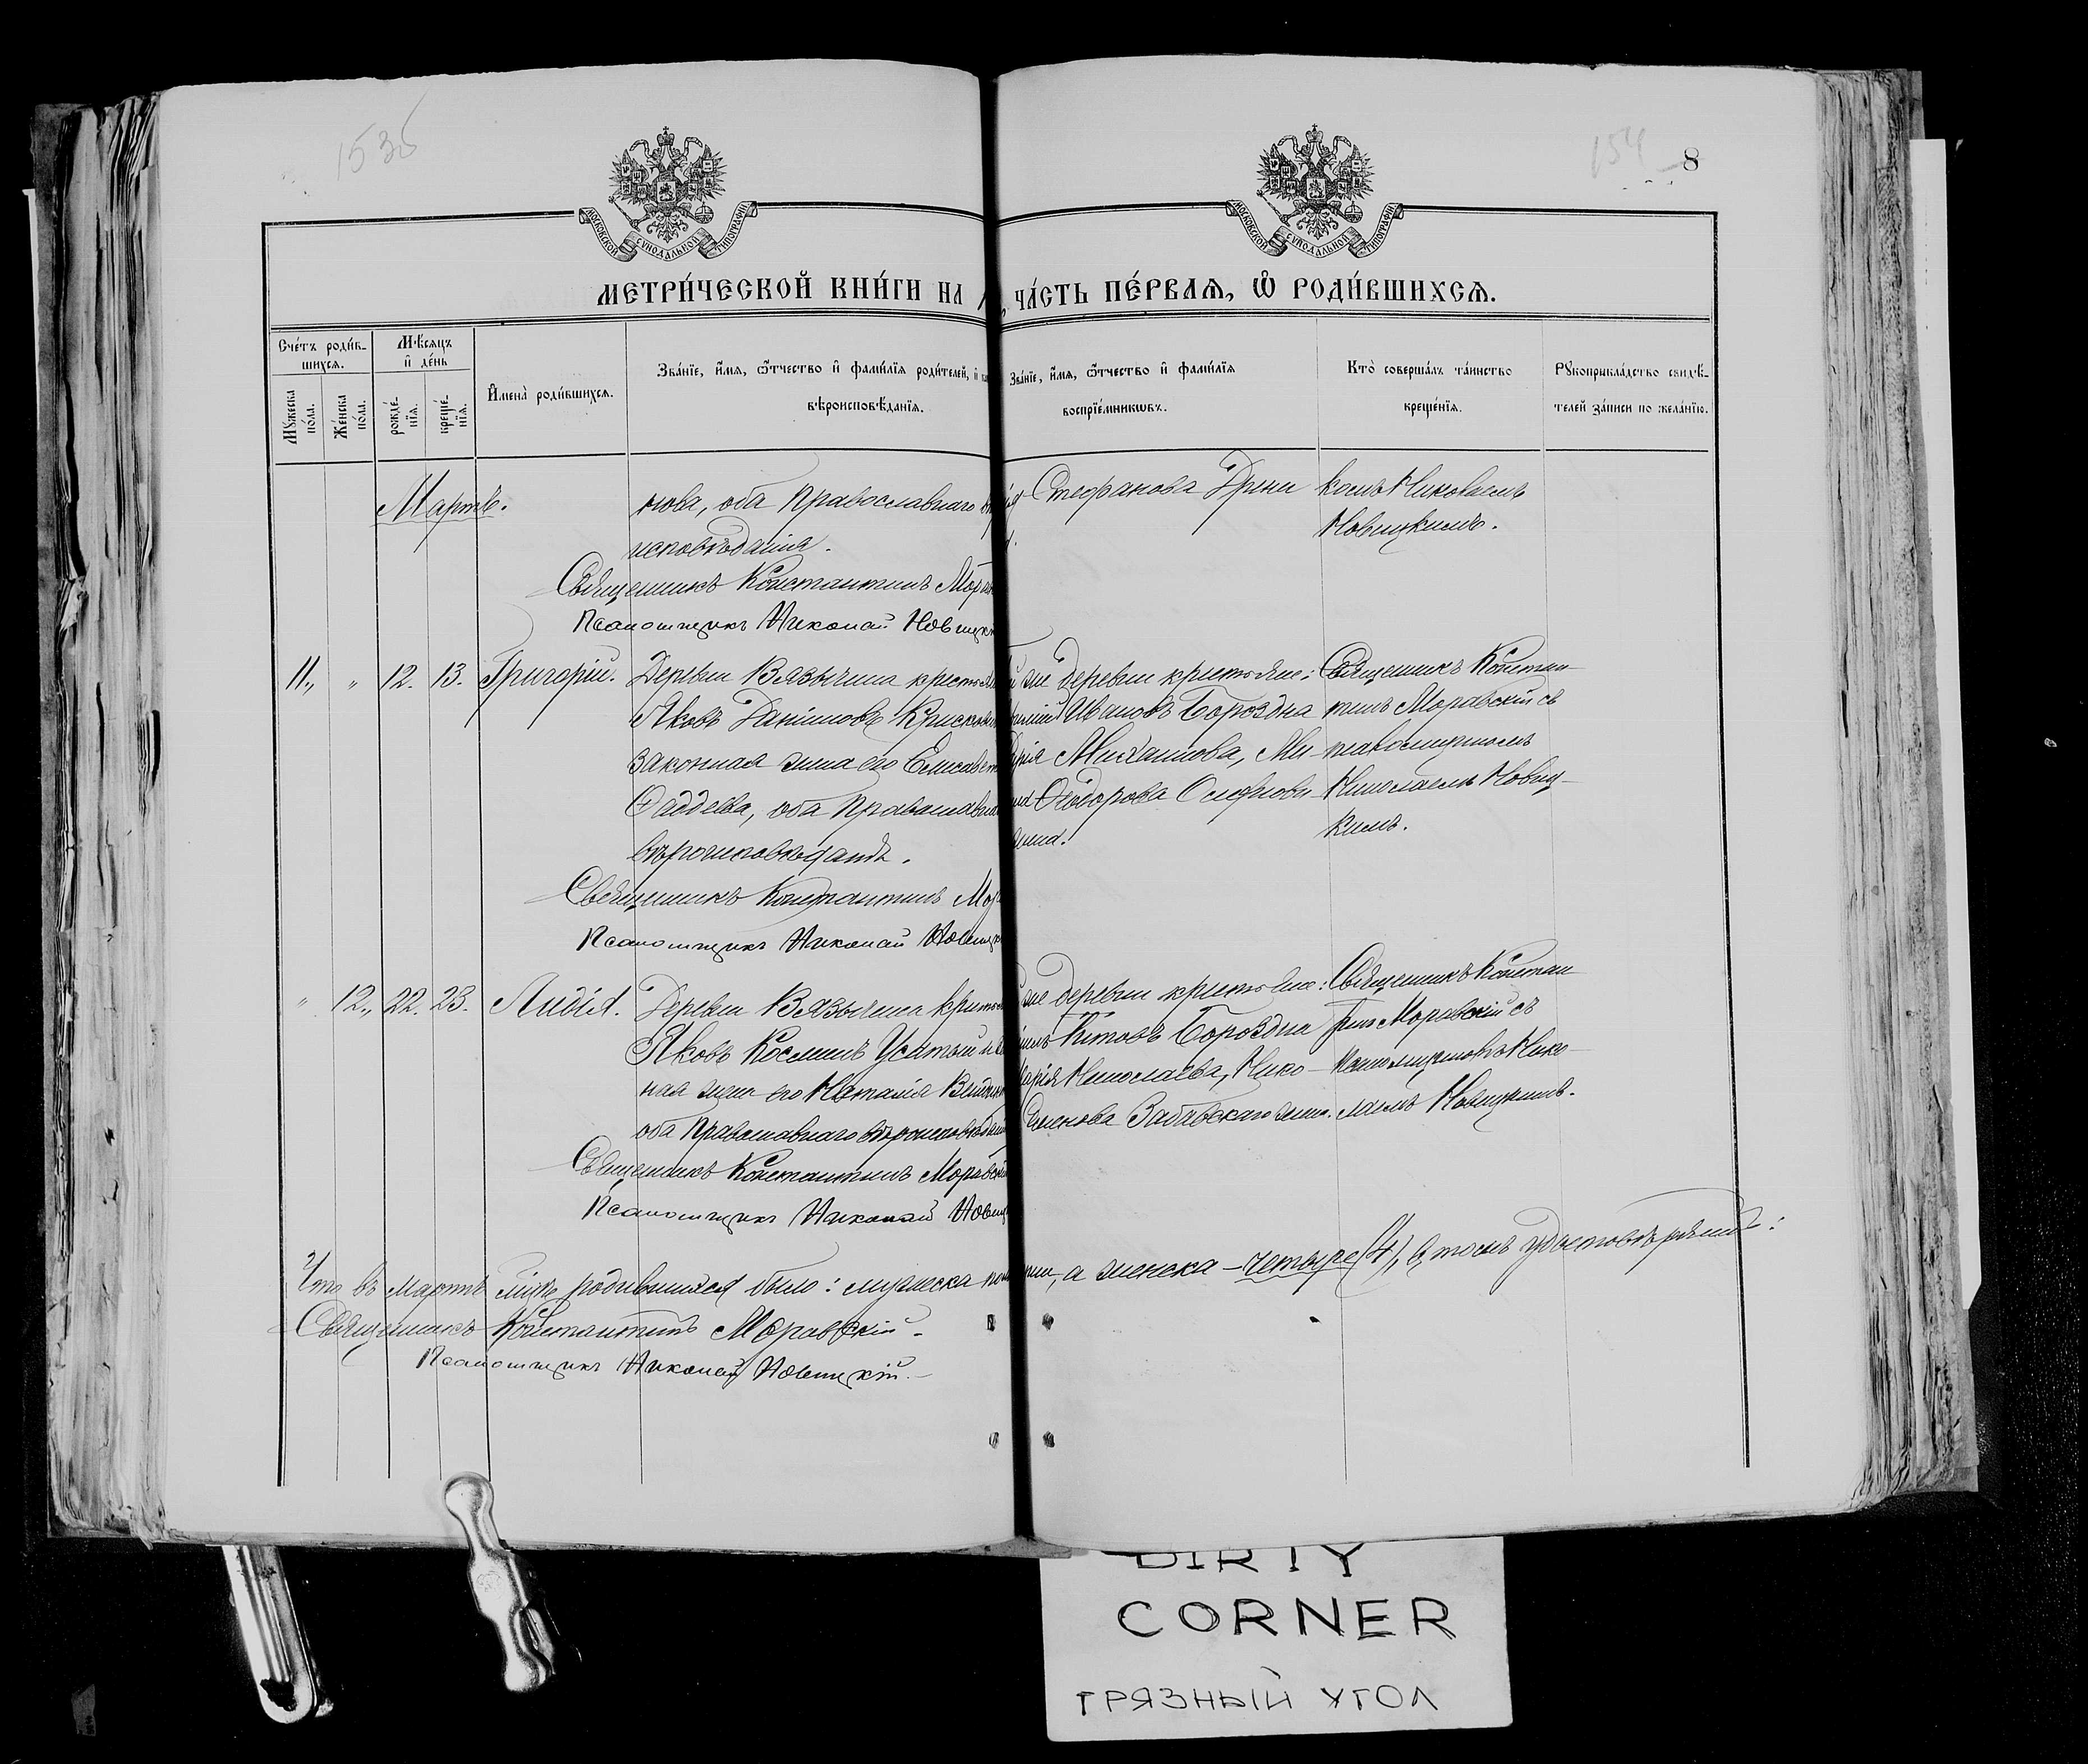 1535
154
8
МОСКОВСКОЙ СѴНОДАЛЬНОЙ ТИПОГРАФІИ
МОСКОВСКОЙ СѴНОДАЛЬНОЙ ТИПОГРАФІИ
МЕТРИ́ЧЕСКОЙ КНИ́ГИ НА
ЧА́СТЬ ПЕ́РВАѦ, Ѽ РОДИ́ВШИХСѦ.
Сче́тъ роди́в-
шихсѧ.
Мѣ́сѧцъ
и҆ де́нь
Мꙋ́жеска
по́ла.
Же́нска
по́ла.
рожде́-
нїѧ.
креще́-
нїѧ.
И҆мена̀ роди́вшихсѧ.
Зва́нїе, и҆́мѧ, ѻ҆́тчество и҆ фами́лїѧ роди́телей, и҆
вѣроисповѣ́данїѧ.
Зва́нїе, и҆́мѧ, ѻ҆́тчество и҆ фами́лїѧ
воспрїе́мникѡвъ.
Кто̀ соверша́лъ та́инство
креще́нїѧ.
Рꙋкоприкла́дство свидѣ́-
телей за́писи по жела́нїю.
Мартъ.
нова, оба Православнаго
исповѣданія.
Священникъ Константинъ
Псаломщикъ Николай
Стефанова
комъ Николаемъ
Новицкимъ.
11., " 12. 13. Григорій.
Деревни Вязычина
Яковъ Даніиловъ
законная жена его
Фаддева, оба
вѣроисповѣданія.
Священникъ Константинъ
Псаломщикъ Николай
деревни крестьяне:
Ивановъ Бороздна
Михаилова,
Ѳеодорова
Священникъ Констан-
тинъ Моравскій съ
псаломщикомъ
Николаемъ Новиц-
кимъ.
" 12., 22. 23. Лидія.
Деревни Вязычина
Яковъ Косминъ Усатый
ная жена его Наталія
оба Православнаго
Священникъ Константинъ
Псаломщикъ Николай
деревни крестьяне:
Титовъ Бороздна
Николаева, Нико-
Забавскаго жена.
Священникъ Констан
тинъ Моравскій съ
псаломщикомъ Нико-
лаемъ Новицкимъ.
Что въ Мартѣ м-цѣ родившихся было: мужеска
а женска – четыре (4), въ томъ удостовѣряемъ:
Священникъ Константинъ Моравскій.
Псаломщикъ Николай Новицкій.
DIRTY
CORNER
ГРЯЗНЫЙ УГОЛ